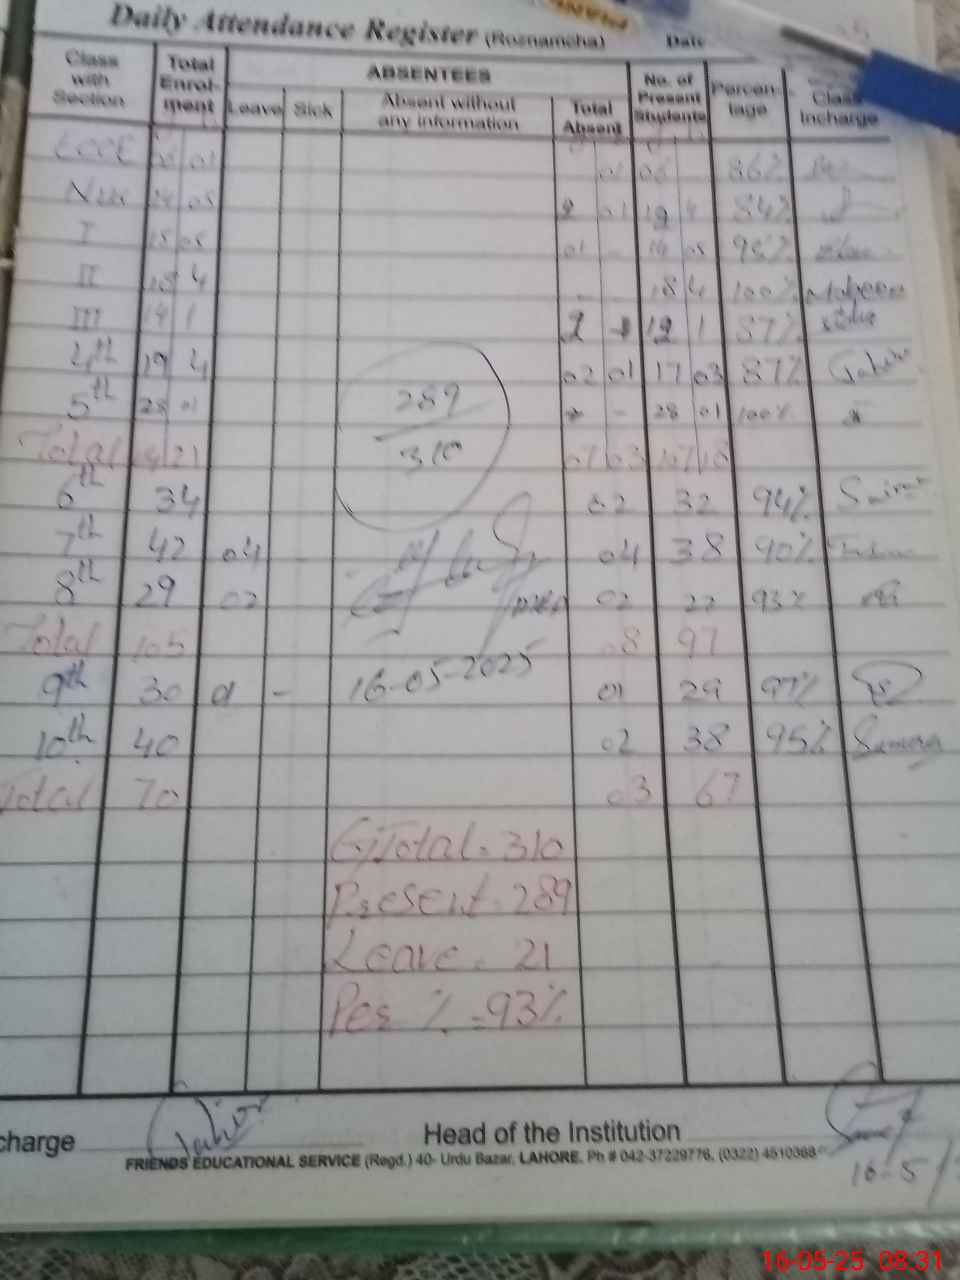 Daily Attendance Register (Roznamcha) Date
Class with Section Total Enrol-ment ABSENTEES No. of Present Students Percen-tage Class Incharge
Leave Sick Absent without any information Total Absent
ECCE 01 01 06 86%
Nur 24 05 2 01 19 4 84%
I 15 05 01 - 14 05 95%
II 18 4 18 4 100% Maheen
III 14 1 2 12 1 87%
4th 19 4 02 01 17 03 87%
5th 28 01 - 28 01 100%
289
310
Total 21 07 03 107 18
6th 34 02 32 94%
7th 42 04 04 38 90%
8th 29 02 02 27 93%
Total 105 08 97
9th 30 01 - 16-05-2025 01 29 97%
10th 40 02 38 95%
Total 70 03 67
G/Total = 310
Present = 289
Leave = 21
Pes % = 93%
charge Head of the Institution
FRIENDS EDUCATIONAL SERVICE (Regd.) 40- Urdu Bazar, LAHORE. Ph # 042-37229776, (0322) 4510368
16-5/
16-05-25 08:31